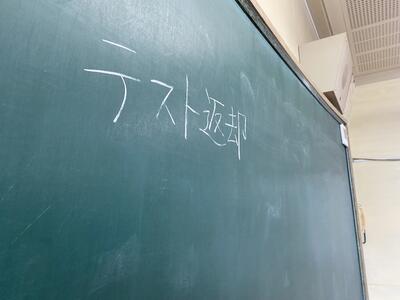 テスト返却